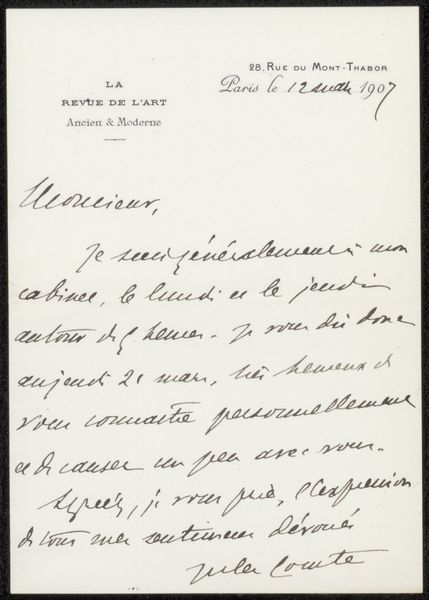 LA
REVUE DE L'ART
Ancien & Moderne
28, RUE DU MONT-THABOR
Paris le 12 mars 1907
Monsieur,
Je suis généralement à mon
cabinet, le lundi et le jeudi
autour de 5 heures. Je vous dis donc
au jeudi 21 mars, très heureux de
vous connaître personnellement
et de causer un peu avec vous.
Agréez, je vous prie, l'expression
de tous mes sentiments dévoués
Jules Comte